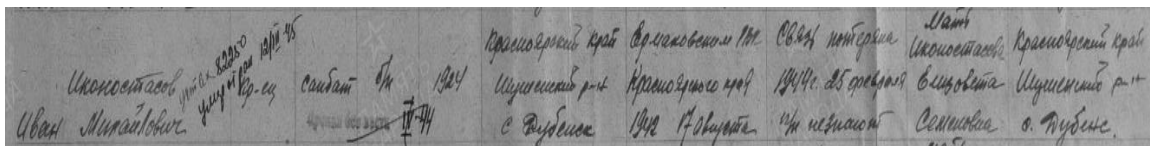 Иконостасов
Иван Михайлович
82250
умер от ран 12/III-45
Кр-ец
санбат
б/п
1924
пропал без вести
IV-44
Красноярский край
Шушенский р-н
с Дубенск
Ермаковским РВК
Красноярского края
1942 17 августа
Связь потеряна
1944 г. 25 февраля
п/п незнают
Мать
Иконостасова
Елизовета
Семеновна
Красноярский край
Шушенский р-н
с. Дубенс.